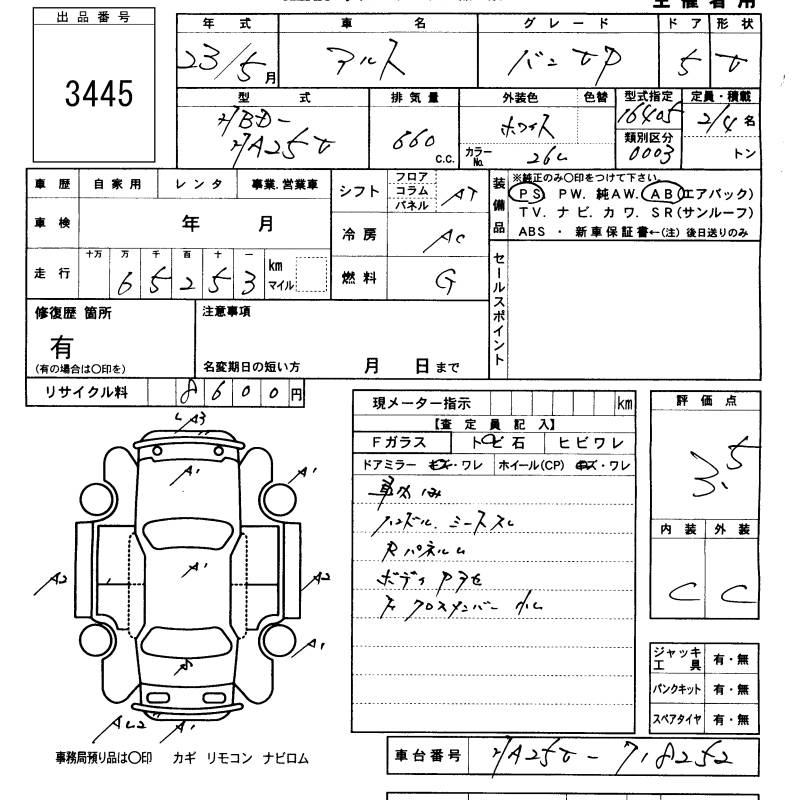 出品番号
3445
年式 車名 グレード ドア 形状
23/5月 アルト バン VP 5 V
型式 排気量 外装色 色替 型式指定 定員・積載
HBD-
HA25V
660 c.c.
ホワイト
カラーNo. 26U
16405
類別区分
0003
2/4名
トン
車歴 自家用 レンタ 事業.営業車
車検 年 月
走行 十万 万 千 百 十 一
65253 km マイル
シフト フロア コラム パネル AT
冷房 AC
燃料 G
装備品
※純正のみ〇印をつけて下さい。
PS. PW. 純AW. AB(エアバック)
TV. ナビ. カワ. SR(サンルーフ)
ABS ・ 新車保証書←(注) 後日送りのみ
セールスポイント
修復歴 箇所
有
(有の場合は〇印を)
注意事項
名変期日の短い方 月 日まで
リサイクル料 8600円
現メーター指示 km
【査定員記入】
Fガラス トビ石 ヒビワレ
ドアミラー キズ・ワレ ホイール(CP) キズ・ワレ
車内
ハンドル. シートスレ
Rパネルm
ボディ
F クロスメンバー
評価点
3.5
内装 外装
C C
A3
A1
A1
A2
A1
A2
A1
A1
事務局預り品は〇印 カギ リモコン ナビロム
ジャッキ 工具 有・無
パンクキット 有・無
スペアタイヤ 有・無
車台番号 HA25V-718252